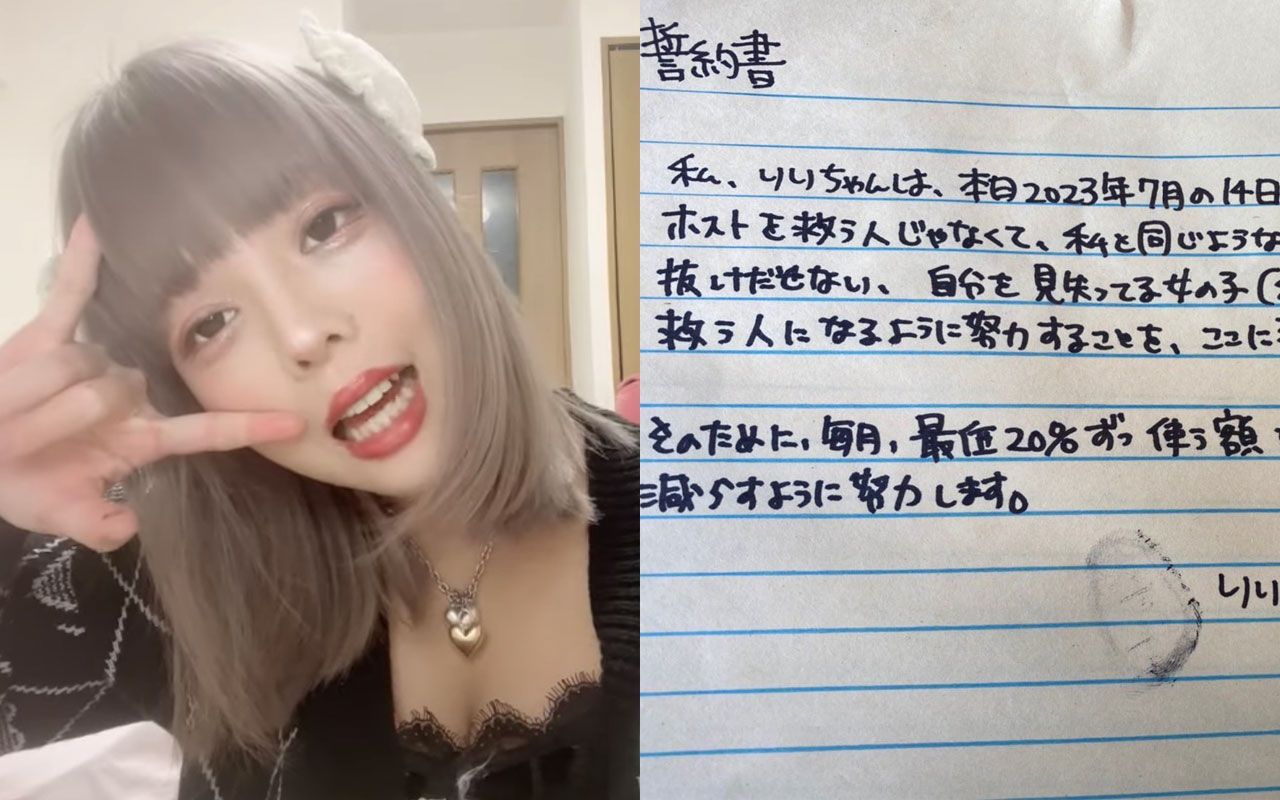 誓約書
私、りりちゃんは、本日2023年7月の14日
ホストを救う人じゃなくて、私と同じような
抜けだせない、自分を見失ってる女の子(
救う人になるように努力することを、ここに
そのために、毎月、最低20%ずつ使う額
減らすように努力します。
りり